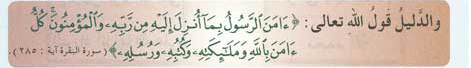 والدليل قول الله تعالى: ﴿ ءَامَنَ ٱلرَّسُولُ بِمَآ أُنزِلَ إِلَيْهِ مِن رَّبِّهِۦ وَٱلْمُؤْمِنُونَۚ كُلٌّ
ءَامَنَ بِٱللَّهِ وَمَلَٰٓئِكَتِهِۦ وَكُتُبِهِۦ وَرُسُلِهِۦ ﴾ (سورة البقرة آية : ٢٨٥).